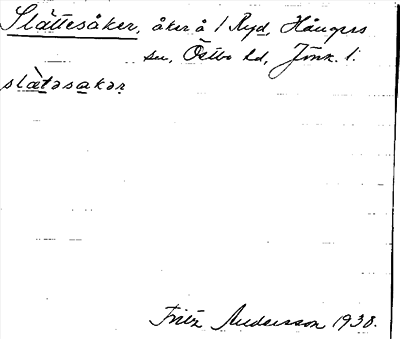 Slättesåker, åker å 1 Ryd, Hångers
sn, Östbo hd, Jönk. l.
slætəsakər
Fritz Andersson 1938.